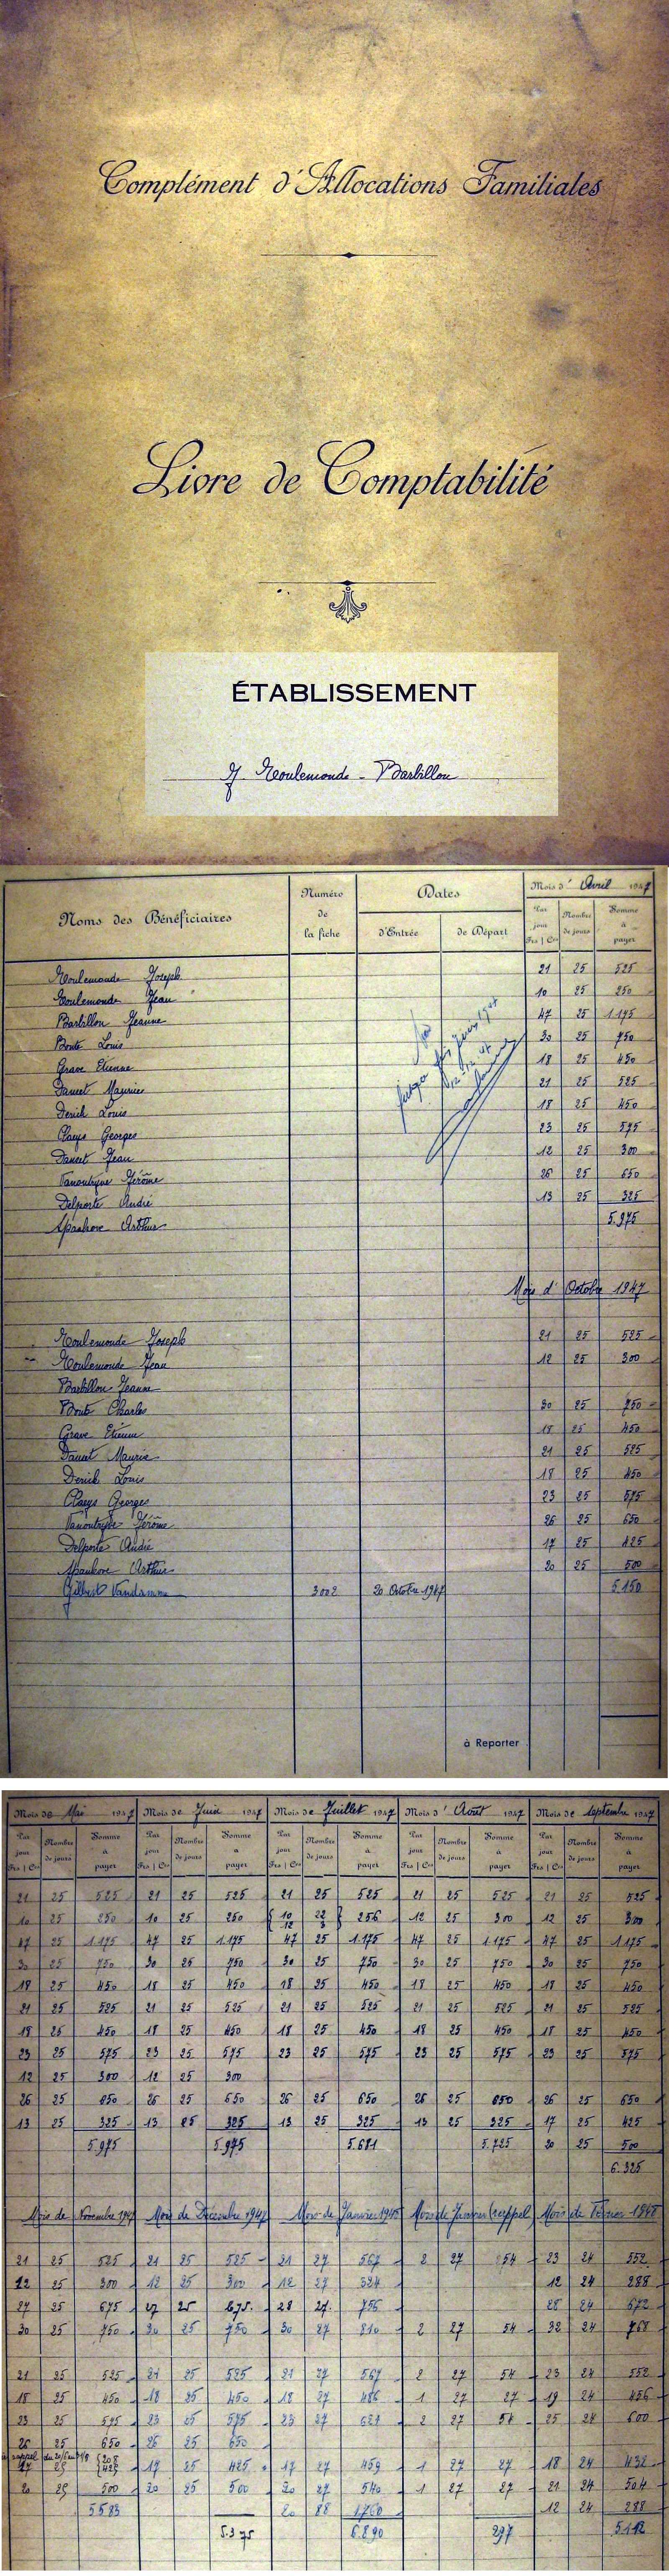 Complément d'Allocations Familiales
Livre de Comptabilité
ÉTABLISSEMENT
J. Moulemonde - Barbillon
Noms des Bénéficiaires
Numéro de la fiche
Dates
d'Entrée
de Départ
Mois d' Avril 1947
Par jour Frs | Cts
Nombre de jours
Somme à payer
Moulemonde Joseph 21 25 525
Moulemonde Jean 10 25 250
Barbillon Jeanne 47 25 1.175
Bonte Louis 30 25 750
Grave Etienne 18 25 450
Dancet Maurice 21 25 525
Denik Louis 18 25 450
Claeys Georges 23 25 575
Dancet Jean 12 25 300
Vanoutryve Jérôme 26 25 650
Delporte André 13 25 325
Arthur
5.975
Mois d' Octobre 1947
Moulemonde Joseph 21 25 525
Moulemonde Jean 12 25 300
Barbillon Jeanne
Bonte Charles 30 25 750
Grave Etienne 18 25 450
Dancet Maurice 21 25 525
Denik Louis 18 25 450
Claeys Georges 23 25 575
Vanoutryve Jérôme 26 25 650
Delporte André 17 25 425
Arthur 20 25 500
Gilbert Vandamme 3002 20 Octobre 1947 5.150
à Reporter
Mois de Mai 1947 Mois de Juin 1947 Mois de Juillet 1947 Mois d' Août 1947 Mois de Septembre 1947
Par jour Frs | Cts Nombre de jours Somme à payer Par jour Frs | Cts Nombre de jours Somme à payer Par jour Frs | Cts Nombre de jours Somme à payer Par jour Frs | Cts Nombre de jours Somme à payer Par jour Frs | Cts Nombre de jours Somme à payer
21 25 525 21 25 525 21 25 525 21 25 525 21 25 525
10 25 250 10 25 250 { 10 22 } 256 12 25 300 12 25 300
12 3
47 25 1.175 47 25 1.175 47 25 1.175 47 25 1.175 47 25 1.175
30 25 750 30 25 750 30 25 750 30 25 750 30 25 750
18 25 450 18 25 450 18 25 450 18 25 450 18 25 450
21 25 525 21 25 525 21 25 525 21 25 525 21 25 525
18 25 450 18 25 450 18 25 450 18 25 450 18 25 450
23 25 575 23 25 575 23 25 575 23 25 575 23 25 575
12 25 300 12 25 300
26 25 650 26 25 650 26 25 650 26 25 650 26 25 650
13 25 325 13 25 325 13 25 325 13 25 325 17 25 425
5.975 5.975 5.681 5.725 20 25 500
6.325
Mois de Novembre 1947 Mois de Décembre 1947 Mois de Janvier 1948 Mois de Janvier (rappel) Mois de Février 1948
21 25 525 21 25 525 21 27 567 2 27 54 23 24 552
12 25 300 12 25 300 12 27 324 12 24 288
27 25 675 27 25 675. 28 27. 756 28 24 672
30 25 750 30 25 750 30 27 810 2 27 54 32 24 768
21 25 525 21 25 525 21 27 567 2 27 54 23 24 552
18 25 450 18 25 450 18 27 486 1 27 27 19 24 456
23 25 575 23 25 575 23 27 621 2 27 54 25 24 600
26 25 650 26 25 650
rappel
17 25 425 17 25 425 17 27 459 1 27 27 18 24 432
20 25 500 20 25 500 20 27 540 1 27 27 21 24 504
5583 20 88 1760 12 24 288
5.375 6.890 297 5.112